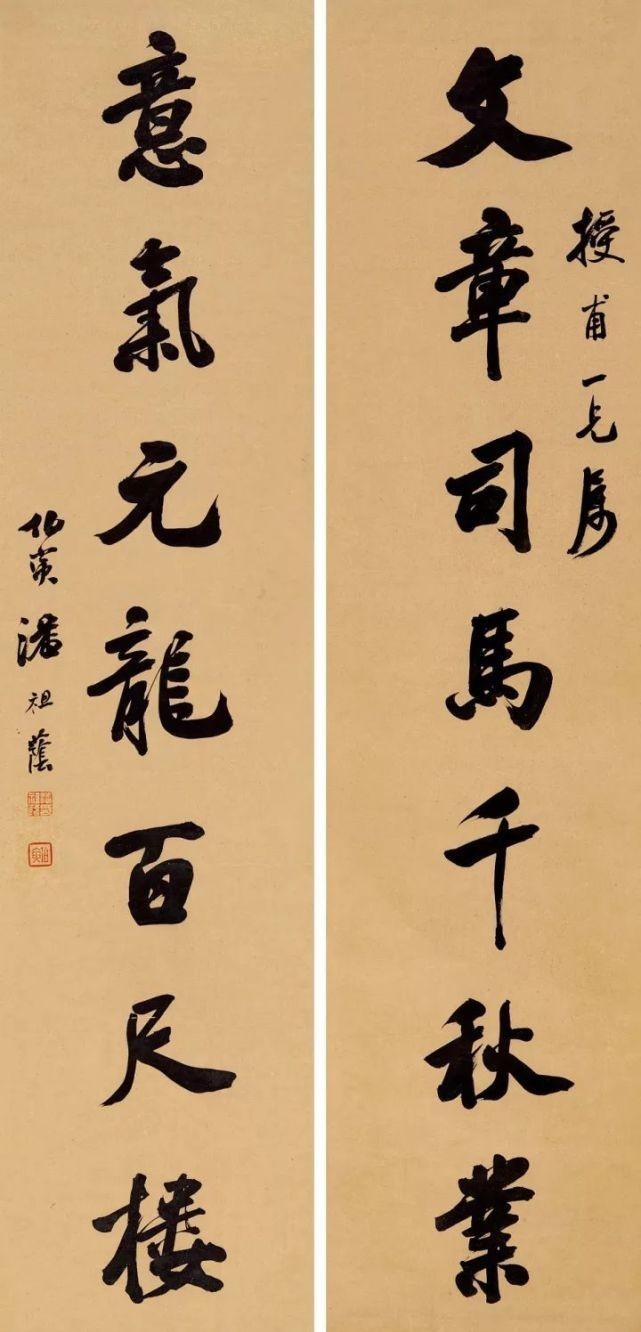 授甫一兄属
文章司馬千秋業
意氣元龍百尺樓
伯寅潘祖蔭